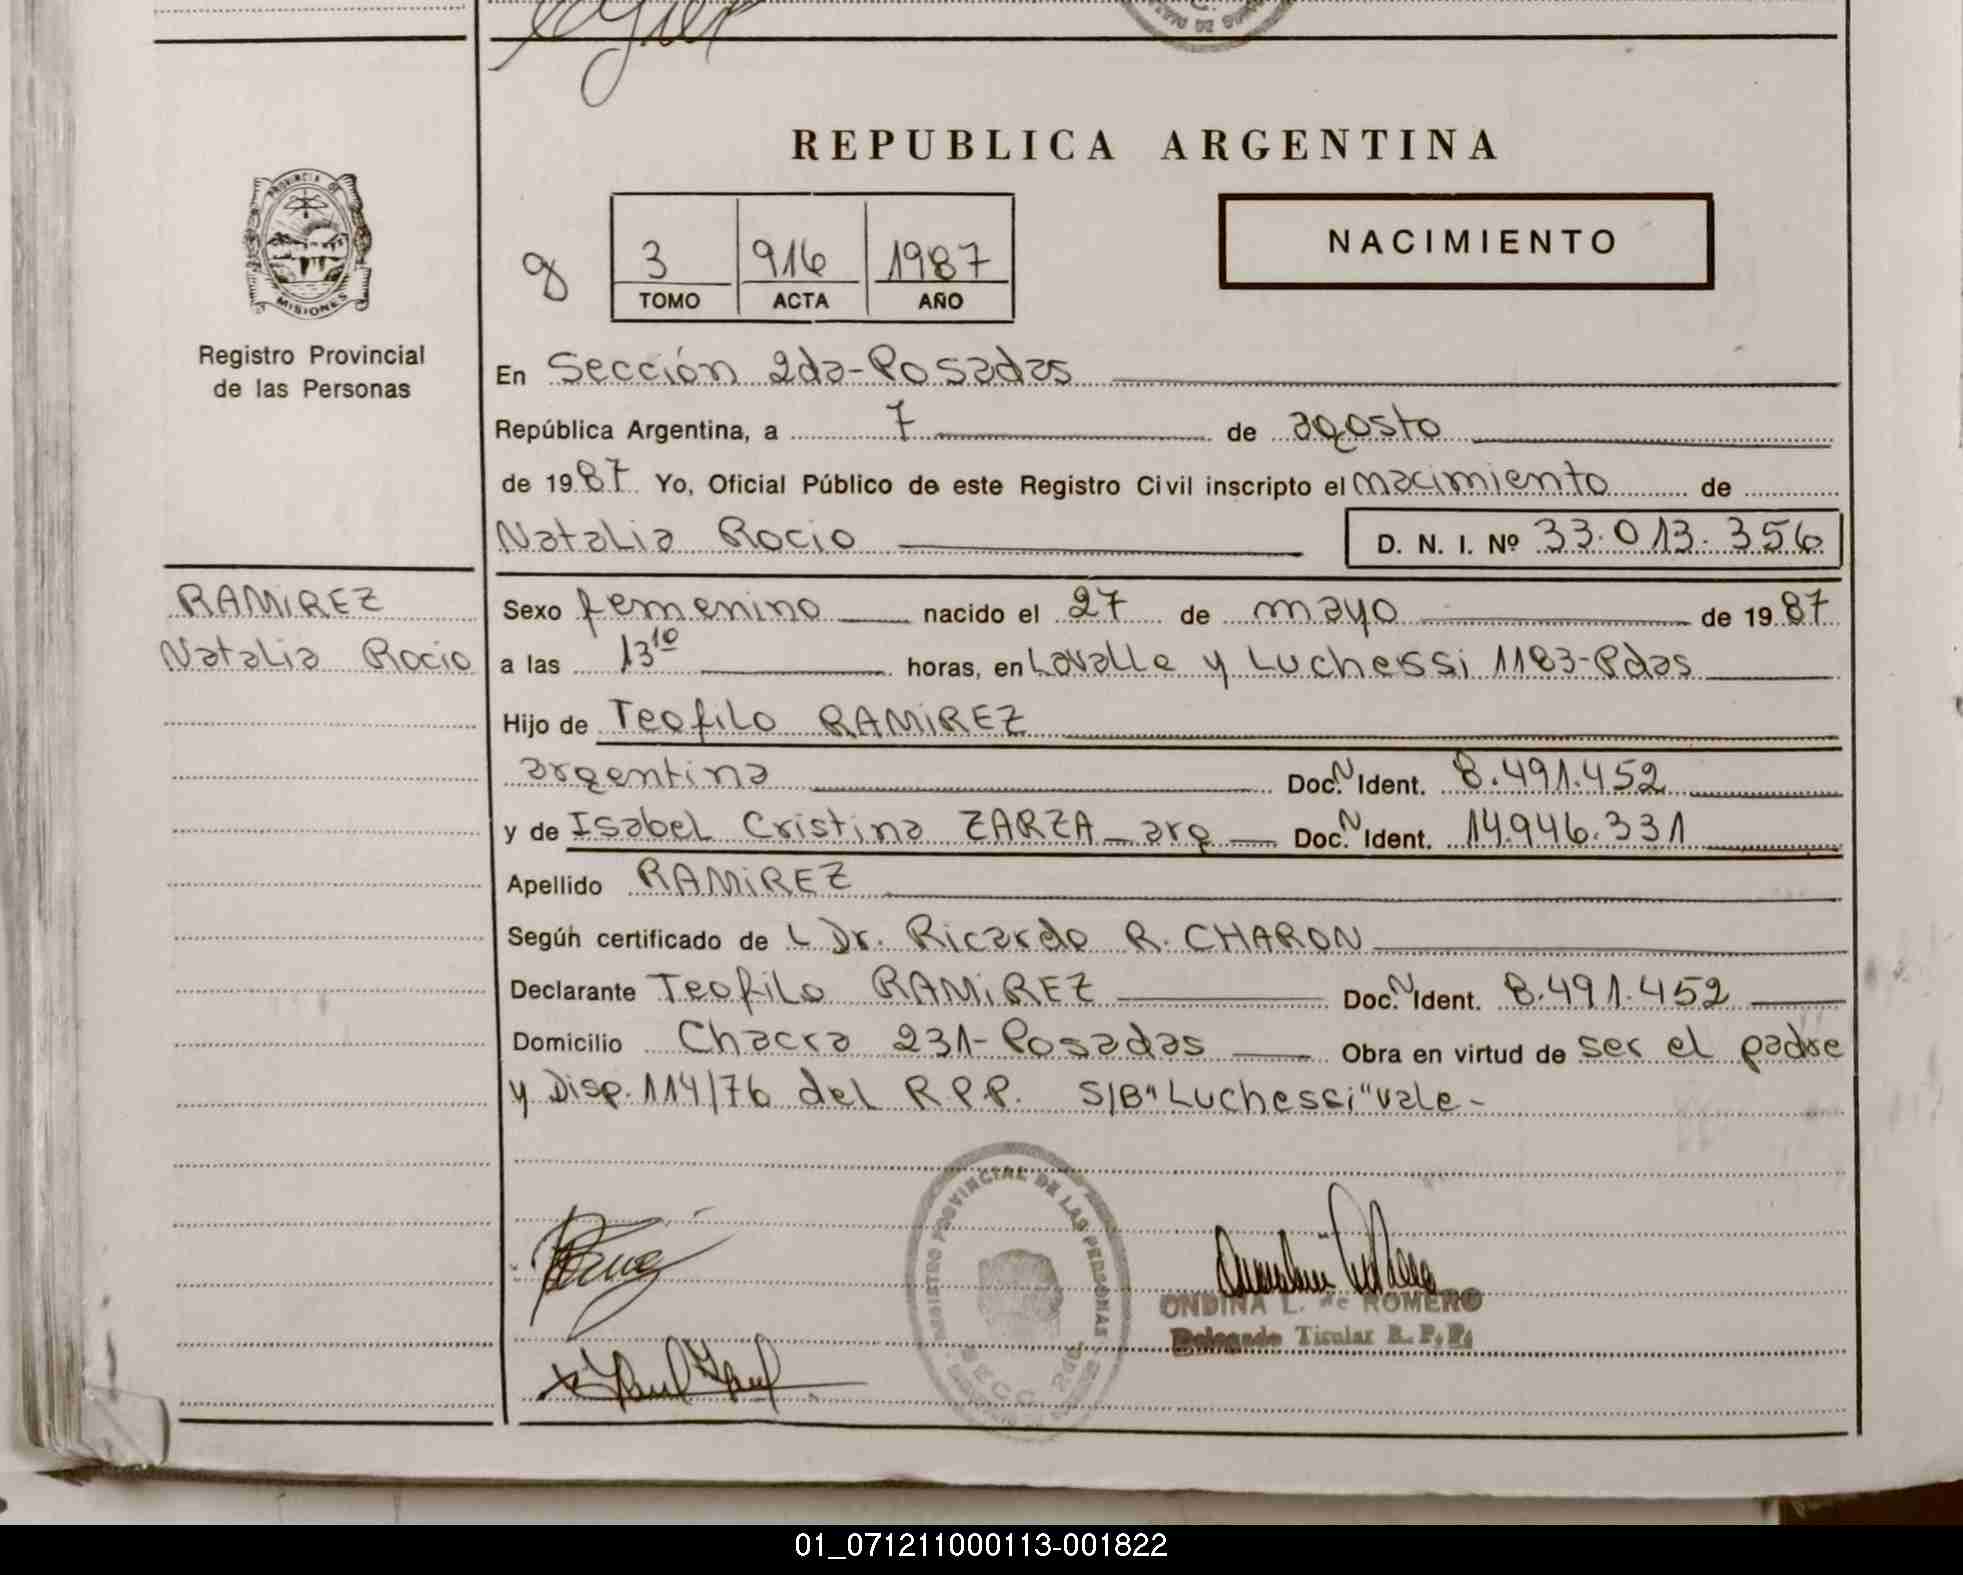 REPUBLICA ARGENTINA
PROVINCIA DE
MISIONES
Registro Provincial
de las Personas
NACIMIENTO
8
3 916 1987
TOMO ACTA AÑO
En Sección 2da-Posadas
República Argentina, a 7 de agosto
de 1987. Yo, Oficial Público de este Registro Civil inscripto el nacimiento de
Natalia Rocio D. N. I. Nº 33.013.356
RAMIREZ
Natalia Rocio
Sexo femenino nacido el 27 de mayo de 1987
a las 13 10 horas, en Lavalle y Luchessi 1183-Pdas
Hijo de Teofilo RAMIREZ
argentina Doc. N Ident. 8.491.452
y de Isabel Cristina ZARZA - arg Doc. N Ident. 14.946.331
Apellido RAMIREZ
Según certificado de L Dr. Ricardo R. CHARON
Declarante Teofilo RAMIREZ Doc. N Ident. 8.491.452
Domicilio Chacra 231-Posadas Obra en virtud de ser el padre
y Disp. 114/76 del R.P.P. S/B "Luchessi" vale-
REGISTRO PROVINCIAL DE LAS PERSONAS
SECC. 2da
ONDINA L. de ROMERO
Delegado Titular R. P. P.
01_071211000113-001822